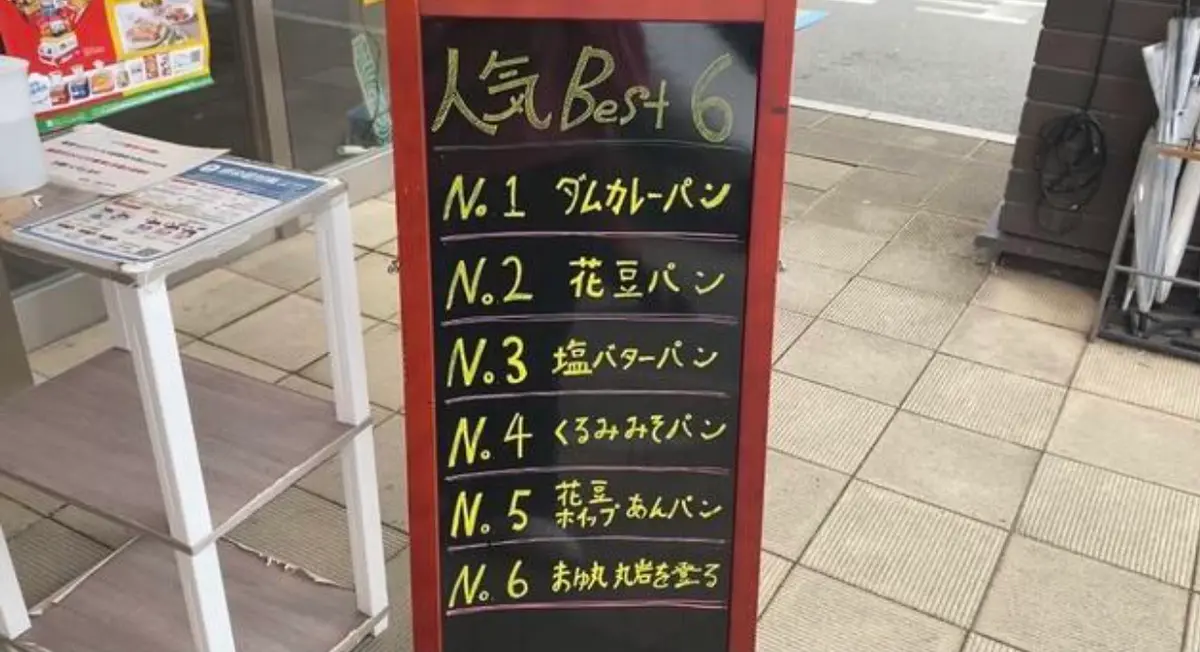 人気 Best 6
No.1 ダムカレーパン
No.2 花豆パン
No.3 塩バターパン
No.4 くるみみそパン
No.5 花豆ホイップあんパン
No.6 まゆ丸 丸岩を登る